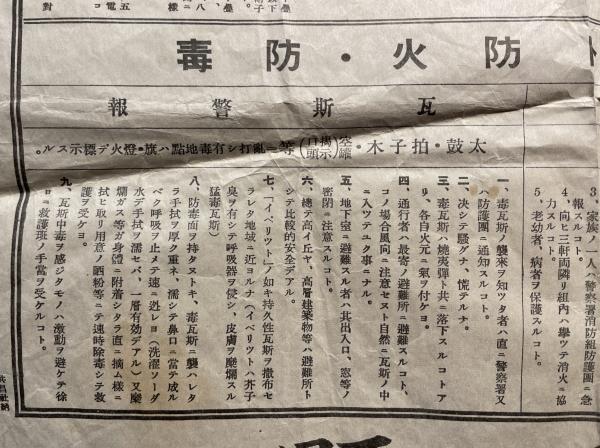 防火・防毒
瓦斯警報
太鼓・拍子木・空罐(揭示口頭)等ニ亂打シ有毒地點ハ旗・燈火デ標示スル。
3、家族ノ一人ハ警察署消防組防護團ニ急
報スルコト。
4、向ヒ三軒両隣リ組内ハ擧ツテ消火ニ協
力スルコト。
5、老幼者、病者ヲ保護スルコト。
一、毒瓦斯ノ襲来ヲ知ツタ者ハ直ニ警察署又
ハ防護團ニ通知スルコト。
二、決シテ騒グナ、慌テルナ。
三、毒瓦斯ハ燒夷彈ト共ニ落下スルコトア
リ、各自火元ニ氣ヲ付ケヨ。
四、通行者ハ最寄ノ避難所ニ避難スルコト、
コノ場合風向ニ注意セヌト自然ニ瓦斯ノ中
ニ入ツテユク事ニナル。
五、地下室ニ避難スル者ハ其出入口、窓等ノ
密閉ニ注意スルコト。
六、總テ高イ丘ヤ、高層建築物等ハ避難所ト
シテ比較的安全デアル。
七、「イペリツト」ノ如キ持久性瓦斯ヲ撒布セ
ラレタ地域ニ近ヨルナ(イペリツトハ芥子
臭ヲ有シテ呼吸器ヲ侵シ、皮膚ヲ糜爛スル
猛毒瓦斯)
八、防毒面ヲ持タヌトキ、毒瓦斯ニ襲ハレタ
ラ手拭ヲ厚ク重ネ、濡シテ鼻口ニ當テ成ル
ベク呼吸ヲ止メテ速ニ逃レヨ(洗濯ソーダ
水デ手拭ヲ濡セバ、一層有効デアル)又糜
爛ガス等ガ身體ニ附着シタラ直ニ摘ム樣ニ
拭ヒ取リ用意ノ晒粉等ニテ速時除毒シテ救
護ヲ受ケヨ。
九、瓦斯中毒ヲ感ジタモノハ激動ヲ避ケテ徐
ロニ救護班ノ手當ヲ受ケルコト。